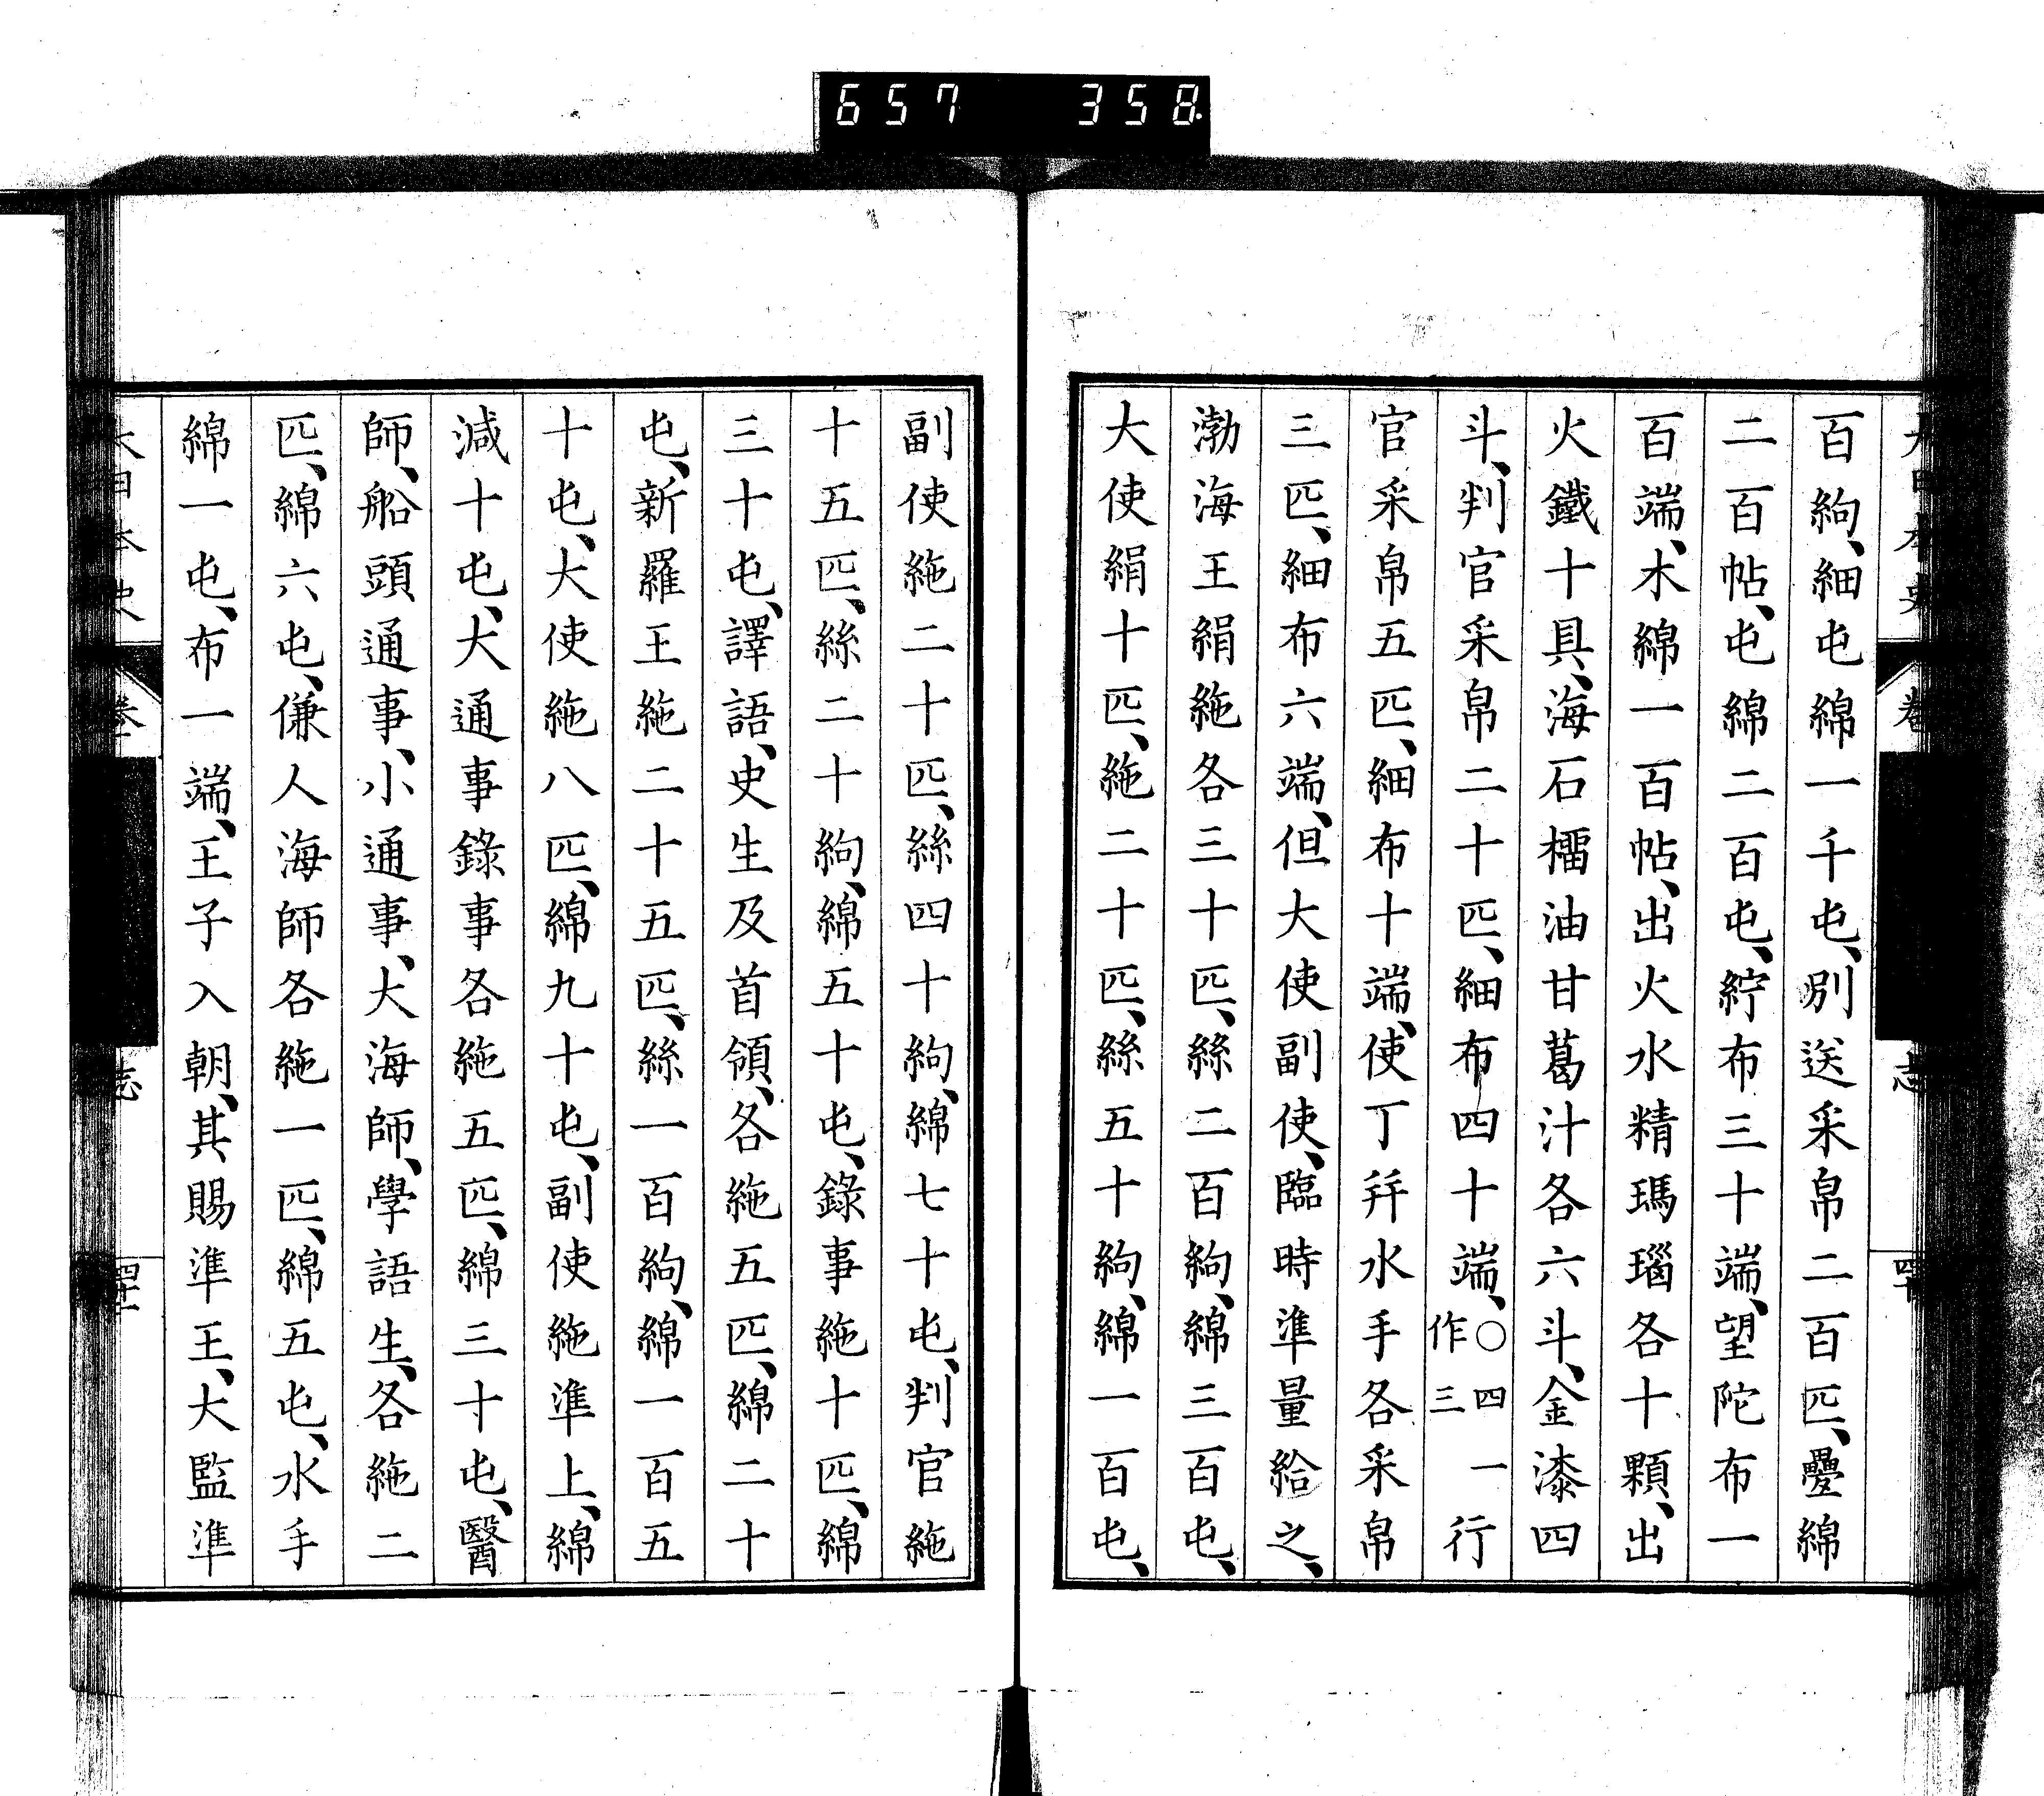 657 358
百絇、細屯綿一千屯、別送采帛二百匹、疊綿
二百帖、屯綿二百屯、紵布三十端、望陀布一
百端、木綿一百帖、出火水精瑪瑙各十顆、出
火鐵十具、海石榴油甘葛汁各六斗、金漆四
斗、判官采帛二十匹、細布四十端、○四一行作三
官采帛五匹、細布十端、使丁幷水手各采帛
三匹、細布六端、但大使副使、臨時準量給之、
渤海王絹絁各三十匹、絲二百絇、綿三百屯、
大使絹十匹、絁二十匹、絲五十絇、綿一百屯、
副使絁二十匹、絲四十絇、綿七十屯、判官絁
十五匹、絲二十絇、綿五十屯、錄事絁十匹、綿
三十屯、譯語、史生及首領、各絁五匹、綿二十
屯、新羅王絁二十五匹、絲一百絇、綿一百五
十屯、大使絁八匹、綿九十屯、副使絁準上、綿
減十屯、大通事錄事各絁五匹、綿三十屯、醫
師、船頭通事、小通事、大海師、學語生、各絁二
匹、綿六屯、傔人海師各絁一匹、綿五屯、水手
綿一屯、布一端、王子入朝、其賜準王、大監準